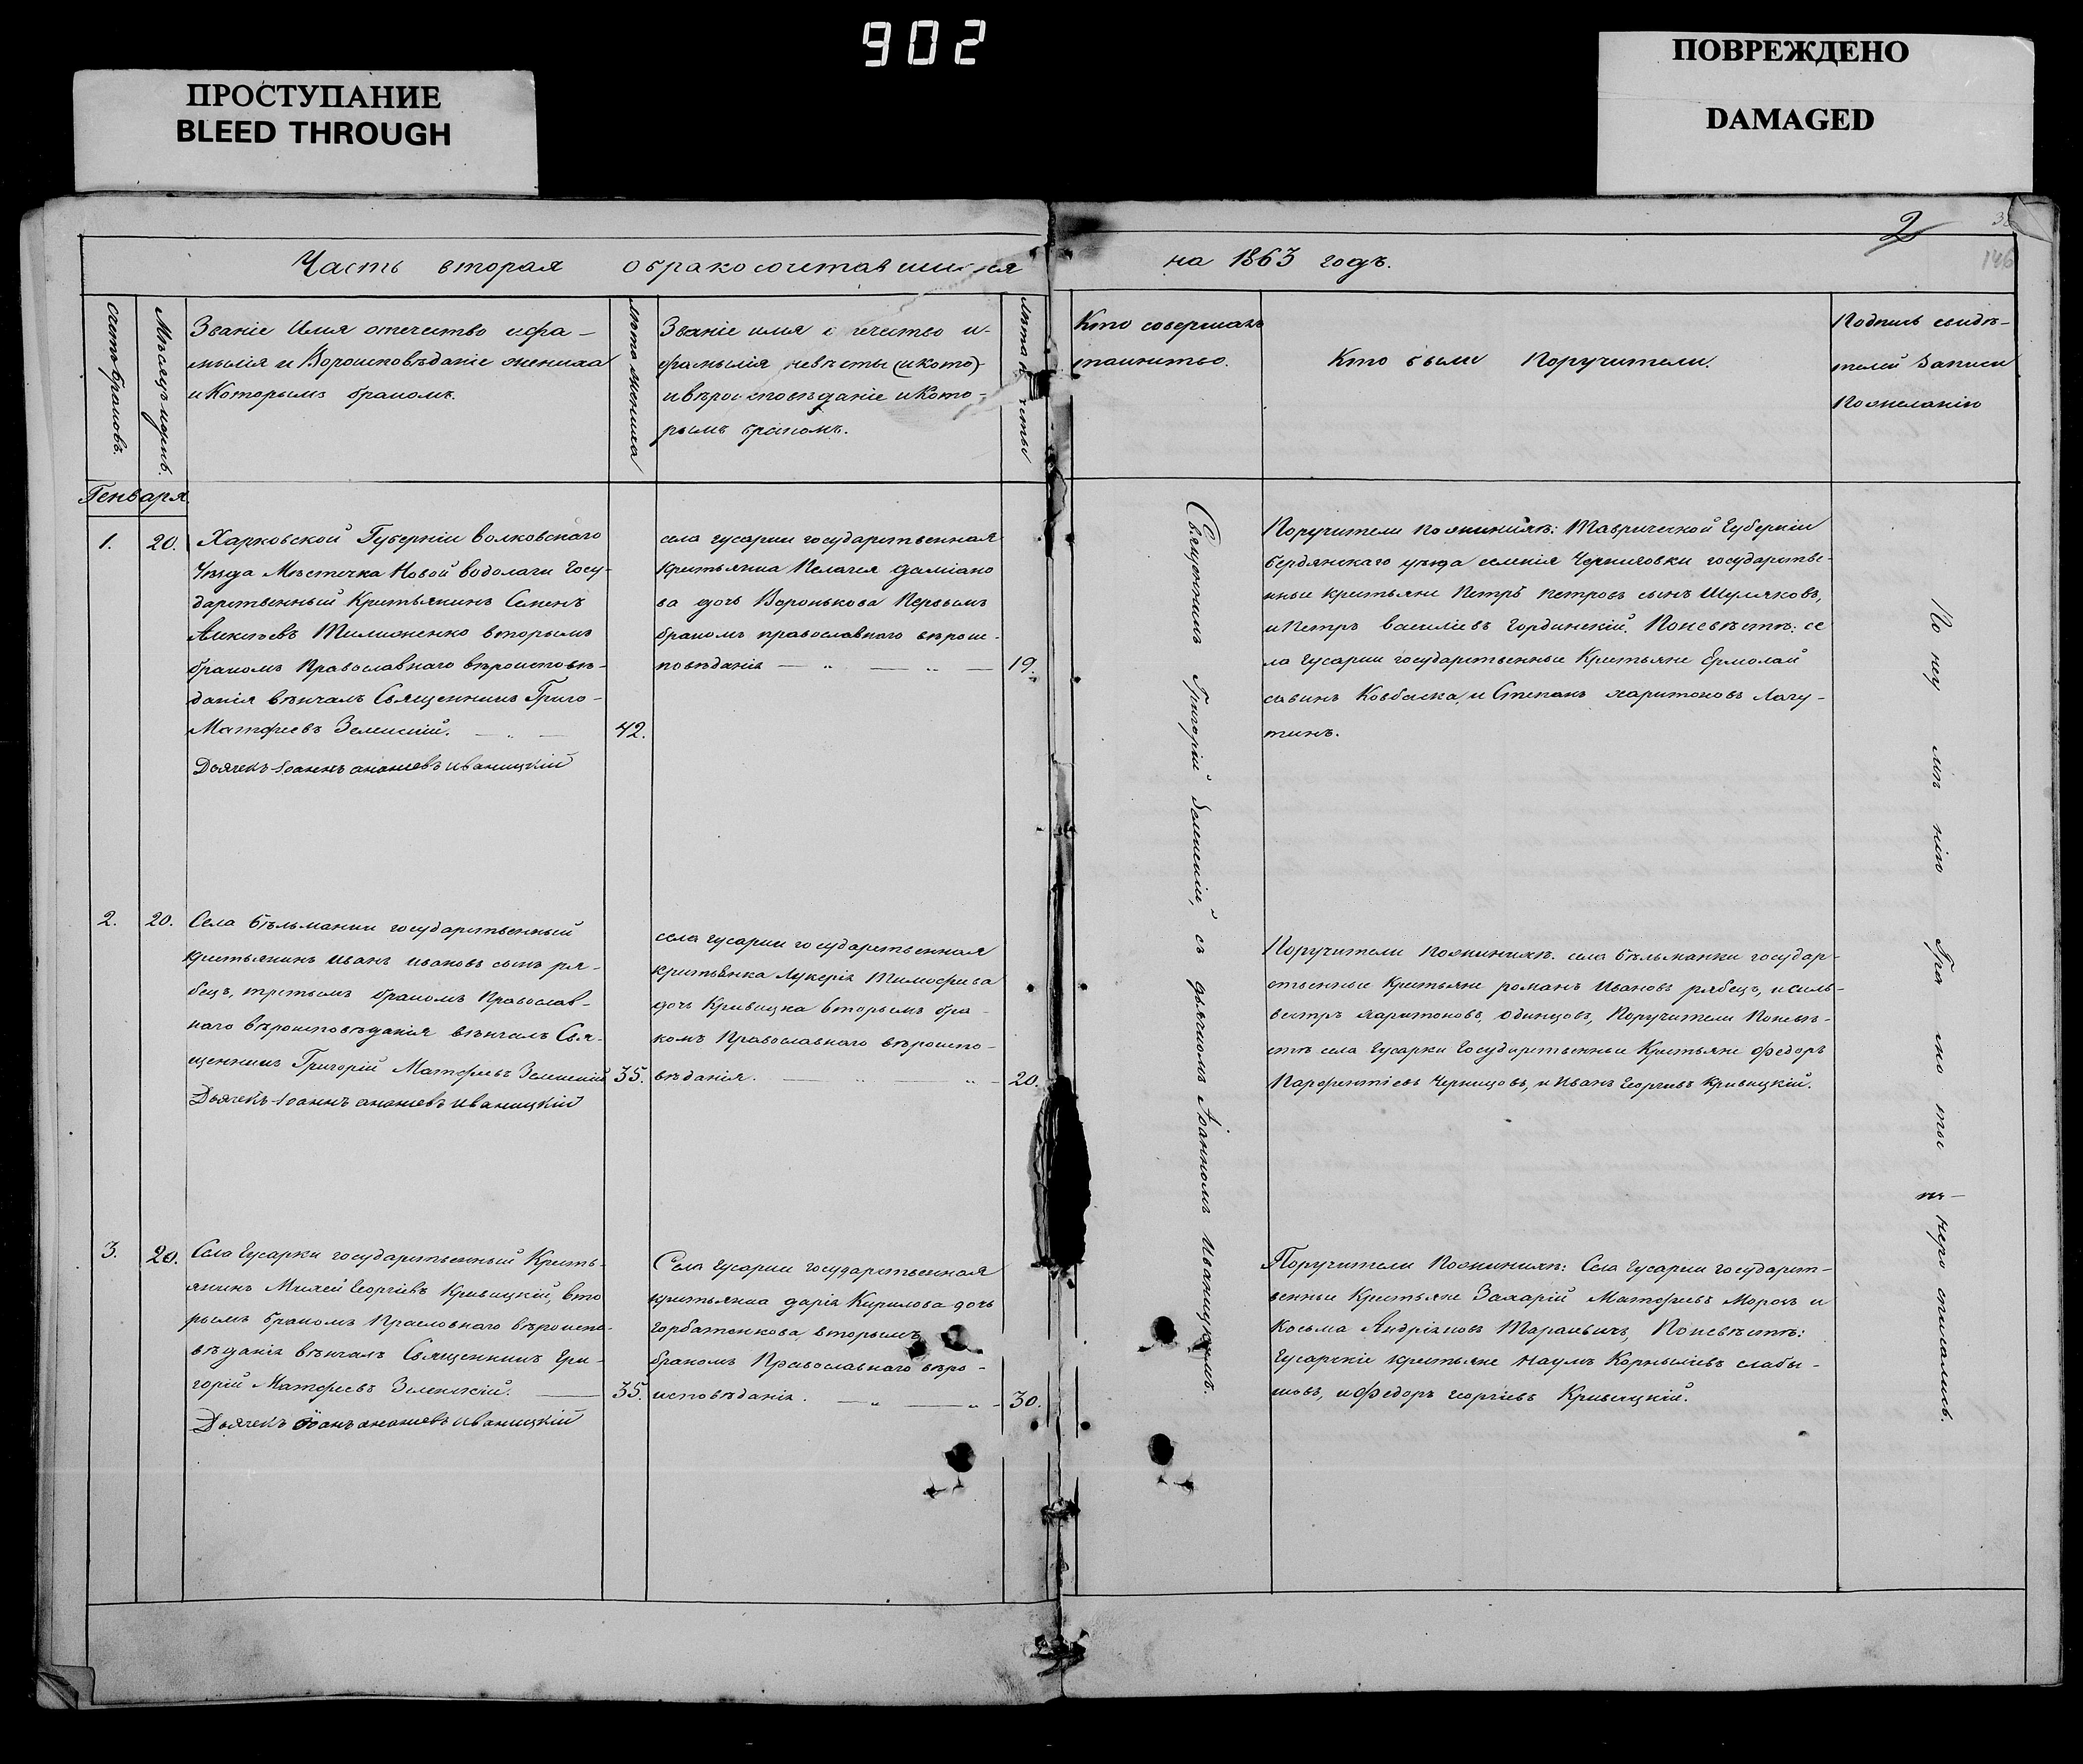 902
ПРОСТУПАНИЕ
BLEED THROUGH
ПОВРЕЖДЕНО
DAMAGED
2
146
Часть вторая о бракосочетавшихся на 1863 годъ.
Счетъ браковъ.
Мѣсяцъ и день.
Званіе Имя отечество и фа-
милія и Вѣроисповѣданіе жениха
и Которымъ бракомъ.
Лѣта жениха
Званіе имя о чество и
фамилія невѣсты (и кото)
и вѣроисповѣданіе и Кото-
рымъ бракомъ.
Лѣта
Кто совершалъ
таинство.
Кто были Поручители.
Подпись свидѣ-
телей Записи
По желанію
Генваря
1.
20.
Харковской Губерніи Волковскаго
Уѣзда Мѣстечка Новой Водолаги Госу-
дарственный Крестьянинъ Семенъ
Алексѣевъ Тимошенко вторымъ
бракомъ Православнаго вѣроисповѣ-
данія вѣнчалъ Священникъ Григо-
Матфіевъ Зеленскій.
42.
Дьячекъ Іоаннъ ананіевъ иваницкій
села гусарки государственная
крестьянка Пелагея даміано
ва дочь Воронькова Первымъ
бракомъ православнаго вѣроис-
повѣданія
19.
Священникъ Григорій Зеленскій, съ дьячкомъ Іоанномъ Иваницкимъ.
Поручители По женихѣ: Таврической Губерніи
бердянскаго уѣзда селенія Черниговки государстве-
нные крестьяне Петръ Петровъ сынъ Шуляковъ,
и Петръ василіевъ Гординскій. По невѣстѣ: се
ла Гусарки государственные Крестьяне Ермолай
савинъ Ковбаска, и Степанъ харитоновъ Лагу-
тинъ.
По неу мѣ нію Гра мо ты не него списались.
2.
20.
Села бѣльманки государственный
крестьянинъ иванъ ивановъ сынъ ря-
бецъ, третьимъ бракомъ Православ-
наго вѣроисповѣданія вѣнчалъ Свя-
щенникъ Григорій Матфіевъ Зеленскій
35.
Дьячекъ Іоаннъ ананіевъ иваницкій
села гусарки государственная
крестьянка Лукерія Тимофеева
дочь Кривицка вторымъ бра-
комъ Православнаго вѣроиспо-
вѣданія.
20.
Поручители По женихѣ: села бѣльманки государ-
ственные Крестьяне романъ Ивановъ рябецъ, и силь-
вестръ харитоновъ, одинцовъ, Поручители По невѣ-
стѣ села Гусарки Государственные Крестьяне Федоръ
Парфентіевъ Чернцовъ, и Иванъ Георгіевъ Кривицкій.
3.
20.
Села Гусарки государственный Кресть-
янинъ Михей Георгіевъ Кривицкій, вто
рымъ бракомъ Прасловнаго вѣроиспо-
вѣданія вѣнчалъ Священникъ Гри-
горій Матфеевъ Зеленскій.
35.
Дьячекъ Іоанъ ананіевъ иваницкій
Села Гусарки государственная
крестьянка дарія Кирилова дочь
горбатенкова вторымъ
бракомъ Православнаго вѣро-
исповѣданія.
30.
Поручители По женихѣ: Села Гусарки государст-
венные Крестьяне Захарій Матфіевъ Морозъ и
Косьма Андріановъ Тараневичъ, По невѣстѣ:
Гусарскіе крестьяне Наумъ Корниліевъ слабы-
шовъ, и Федоръ георгіевъ Кривицкій.